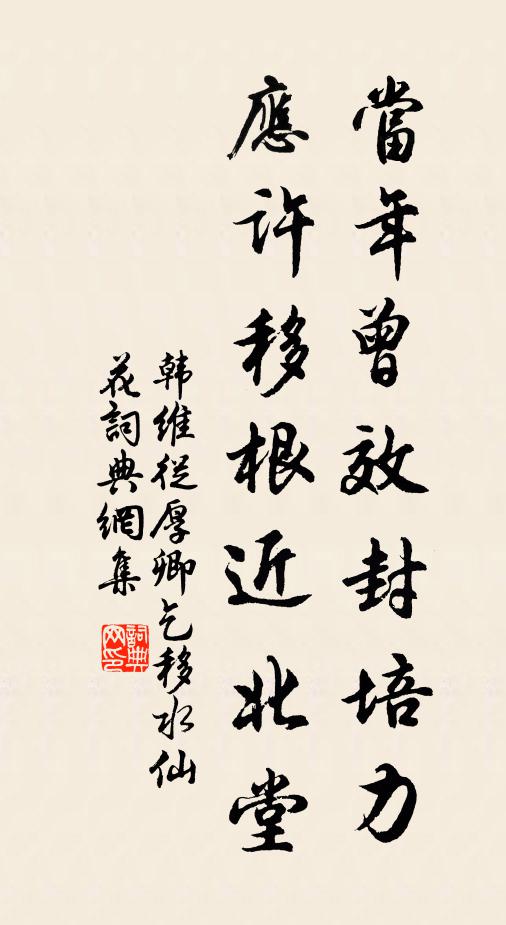 當年曾效封培力
應許移根近北堂
韩維從厚卿乞移水仙
花詞典網集
詞典
网印